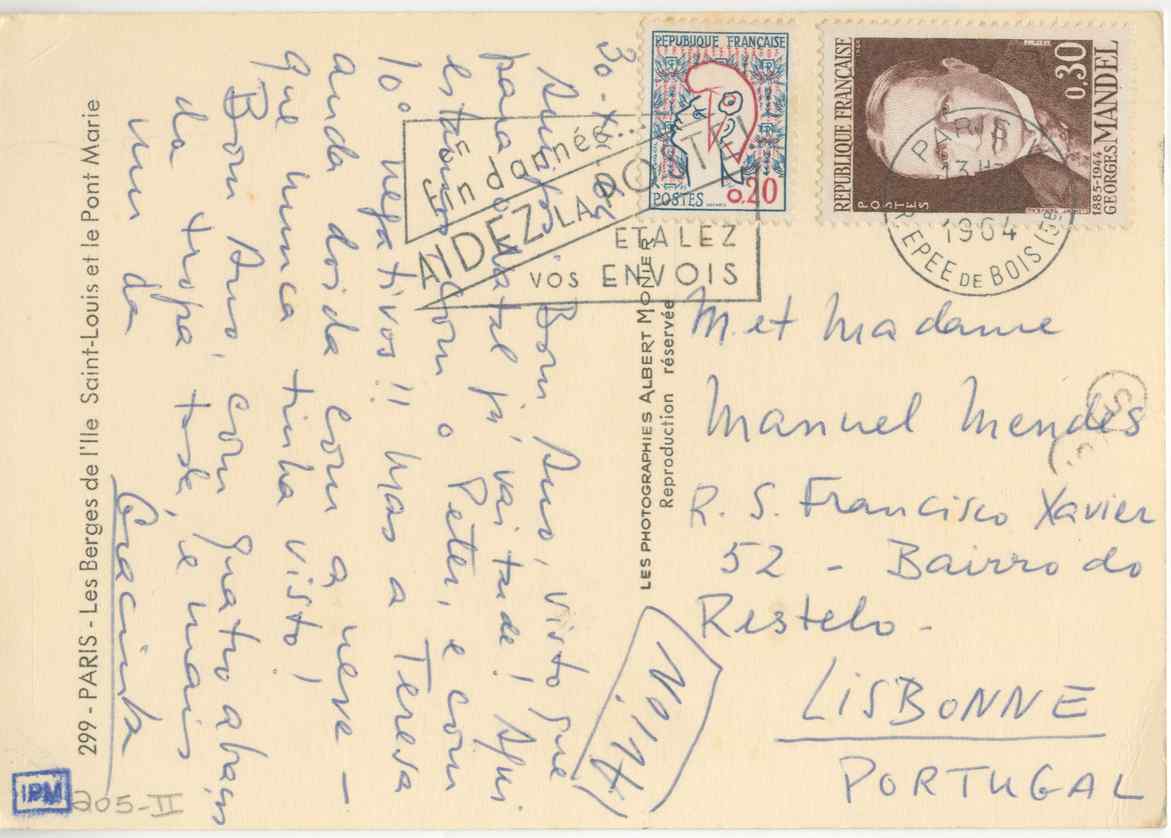 299 - PARIS - Les Berges de l'Ile Saint-Louis et le Pont Marie
30-XII-64
Amigos, Bom Ano, visto que
para o Natal já vai tarde! Aqui
estamos com o Peter, e com
10° negativos!! Mas a Teresa
anda doida com a neve -
que nunca tinha visto!
Bom Ano, com quatro abraços
da tropa toda, e mais
um da
Gracinda
LES PHOTOGRAPHIES ALBERT MONIER
Reproduction réservée
REPUBLIQUE FRANÇAISE
POSTES
0.20
REPUBLIQUE FRANÇAISE
POSTES
0,30
1885-1944
GEORGES MANDEL
En donnée...
AIDEZ LA POSTE
ETALEZ
VOS ENVOIS
PARIS
13H
1964
R. EPEE DE BOIS (5e)
M. et Madame
Manuel Mendes
R. S. Francisco Xavier
52 - Bairro do
Restelo -
LISBONNE
PORTUGAL
AVION
IPM
205-II